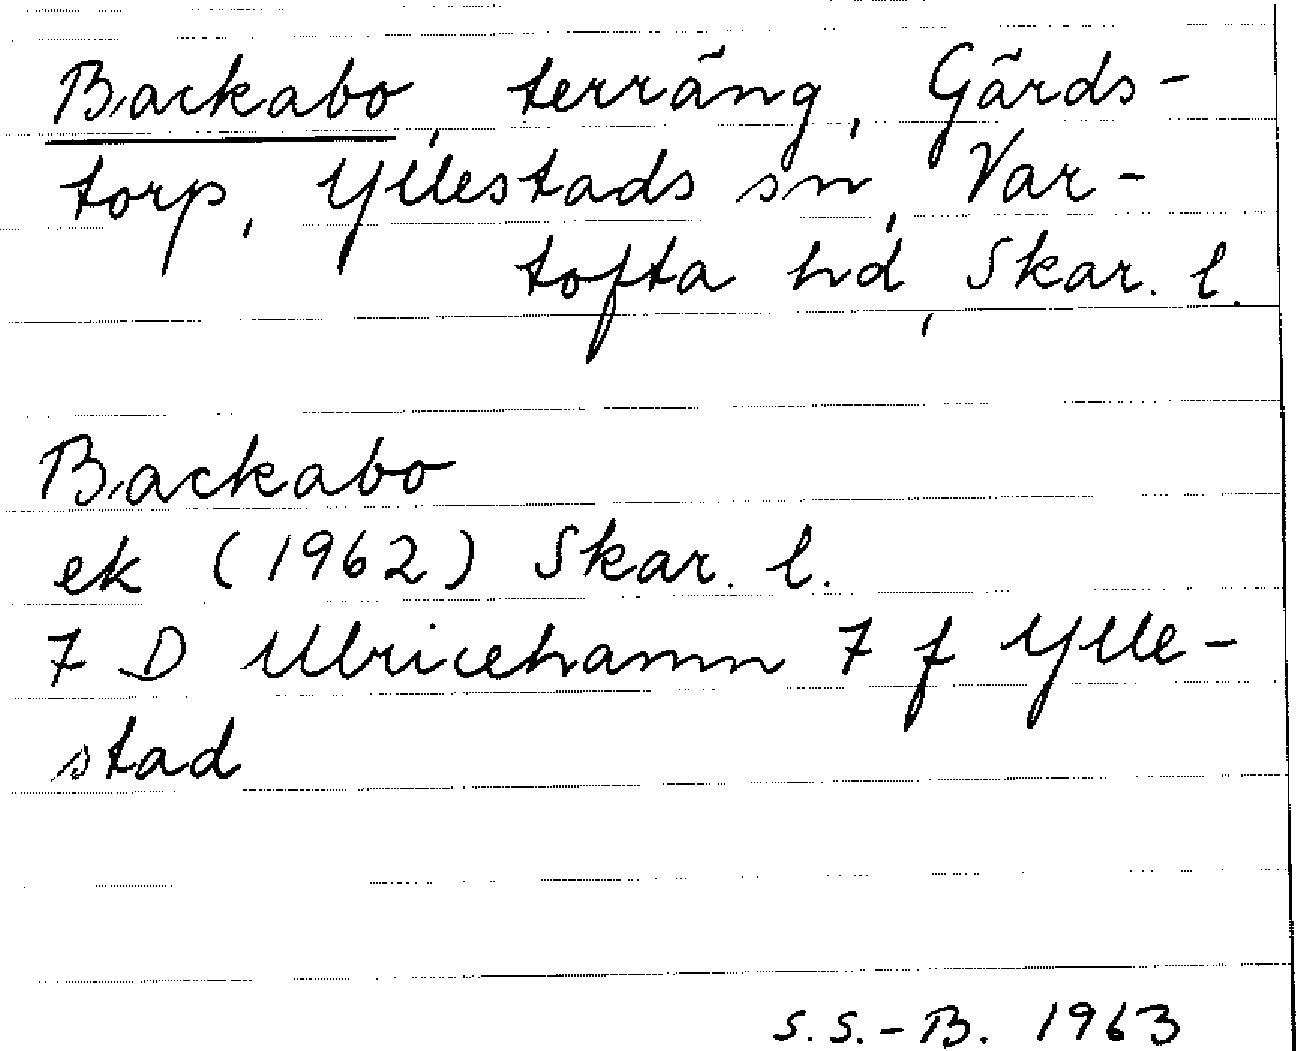 Backabo, terräng, Gärds-
torp, Yllestads sn, Var-
tofta hd, Skar. l.
Backabo
ek (1962) Skar. l.
7 D Ulricehamn 7 f Ylle-
stad
S.S.-B. 1963